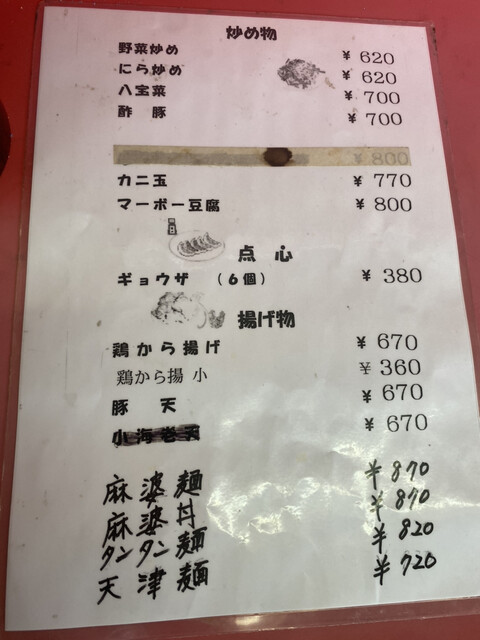 炒め物
野菜炒め ¥ 620
にら炒め ¥ 620
八宝菜 ¥ 700
酢 豚 ¥ 700
¥ 800
カニ玉 ¥ 770
マーボー豆腐 ¥ 800
点 心
ギョウザ (6個) ¥ 380
揚げ物
鶏から揚げ ¥ 670
鶏から揚 小 ¥ 360
豚 天 ¥ 670
小海老天 ¥ 670
麻婆麺 ¥870
麻婆丼 ¥870
タンタン麺 ¥820
天津麺 ¥720